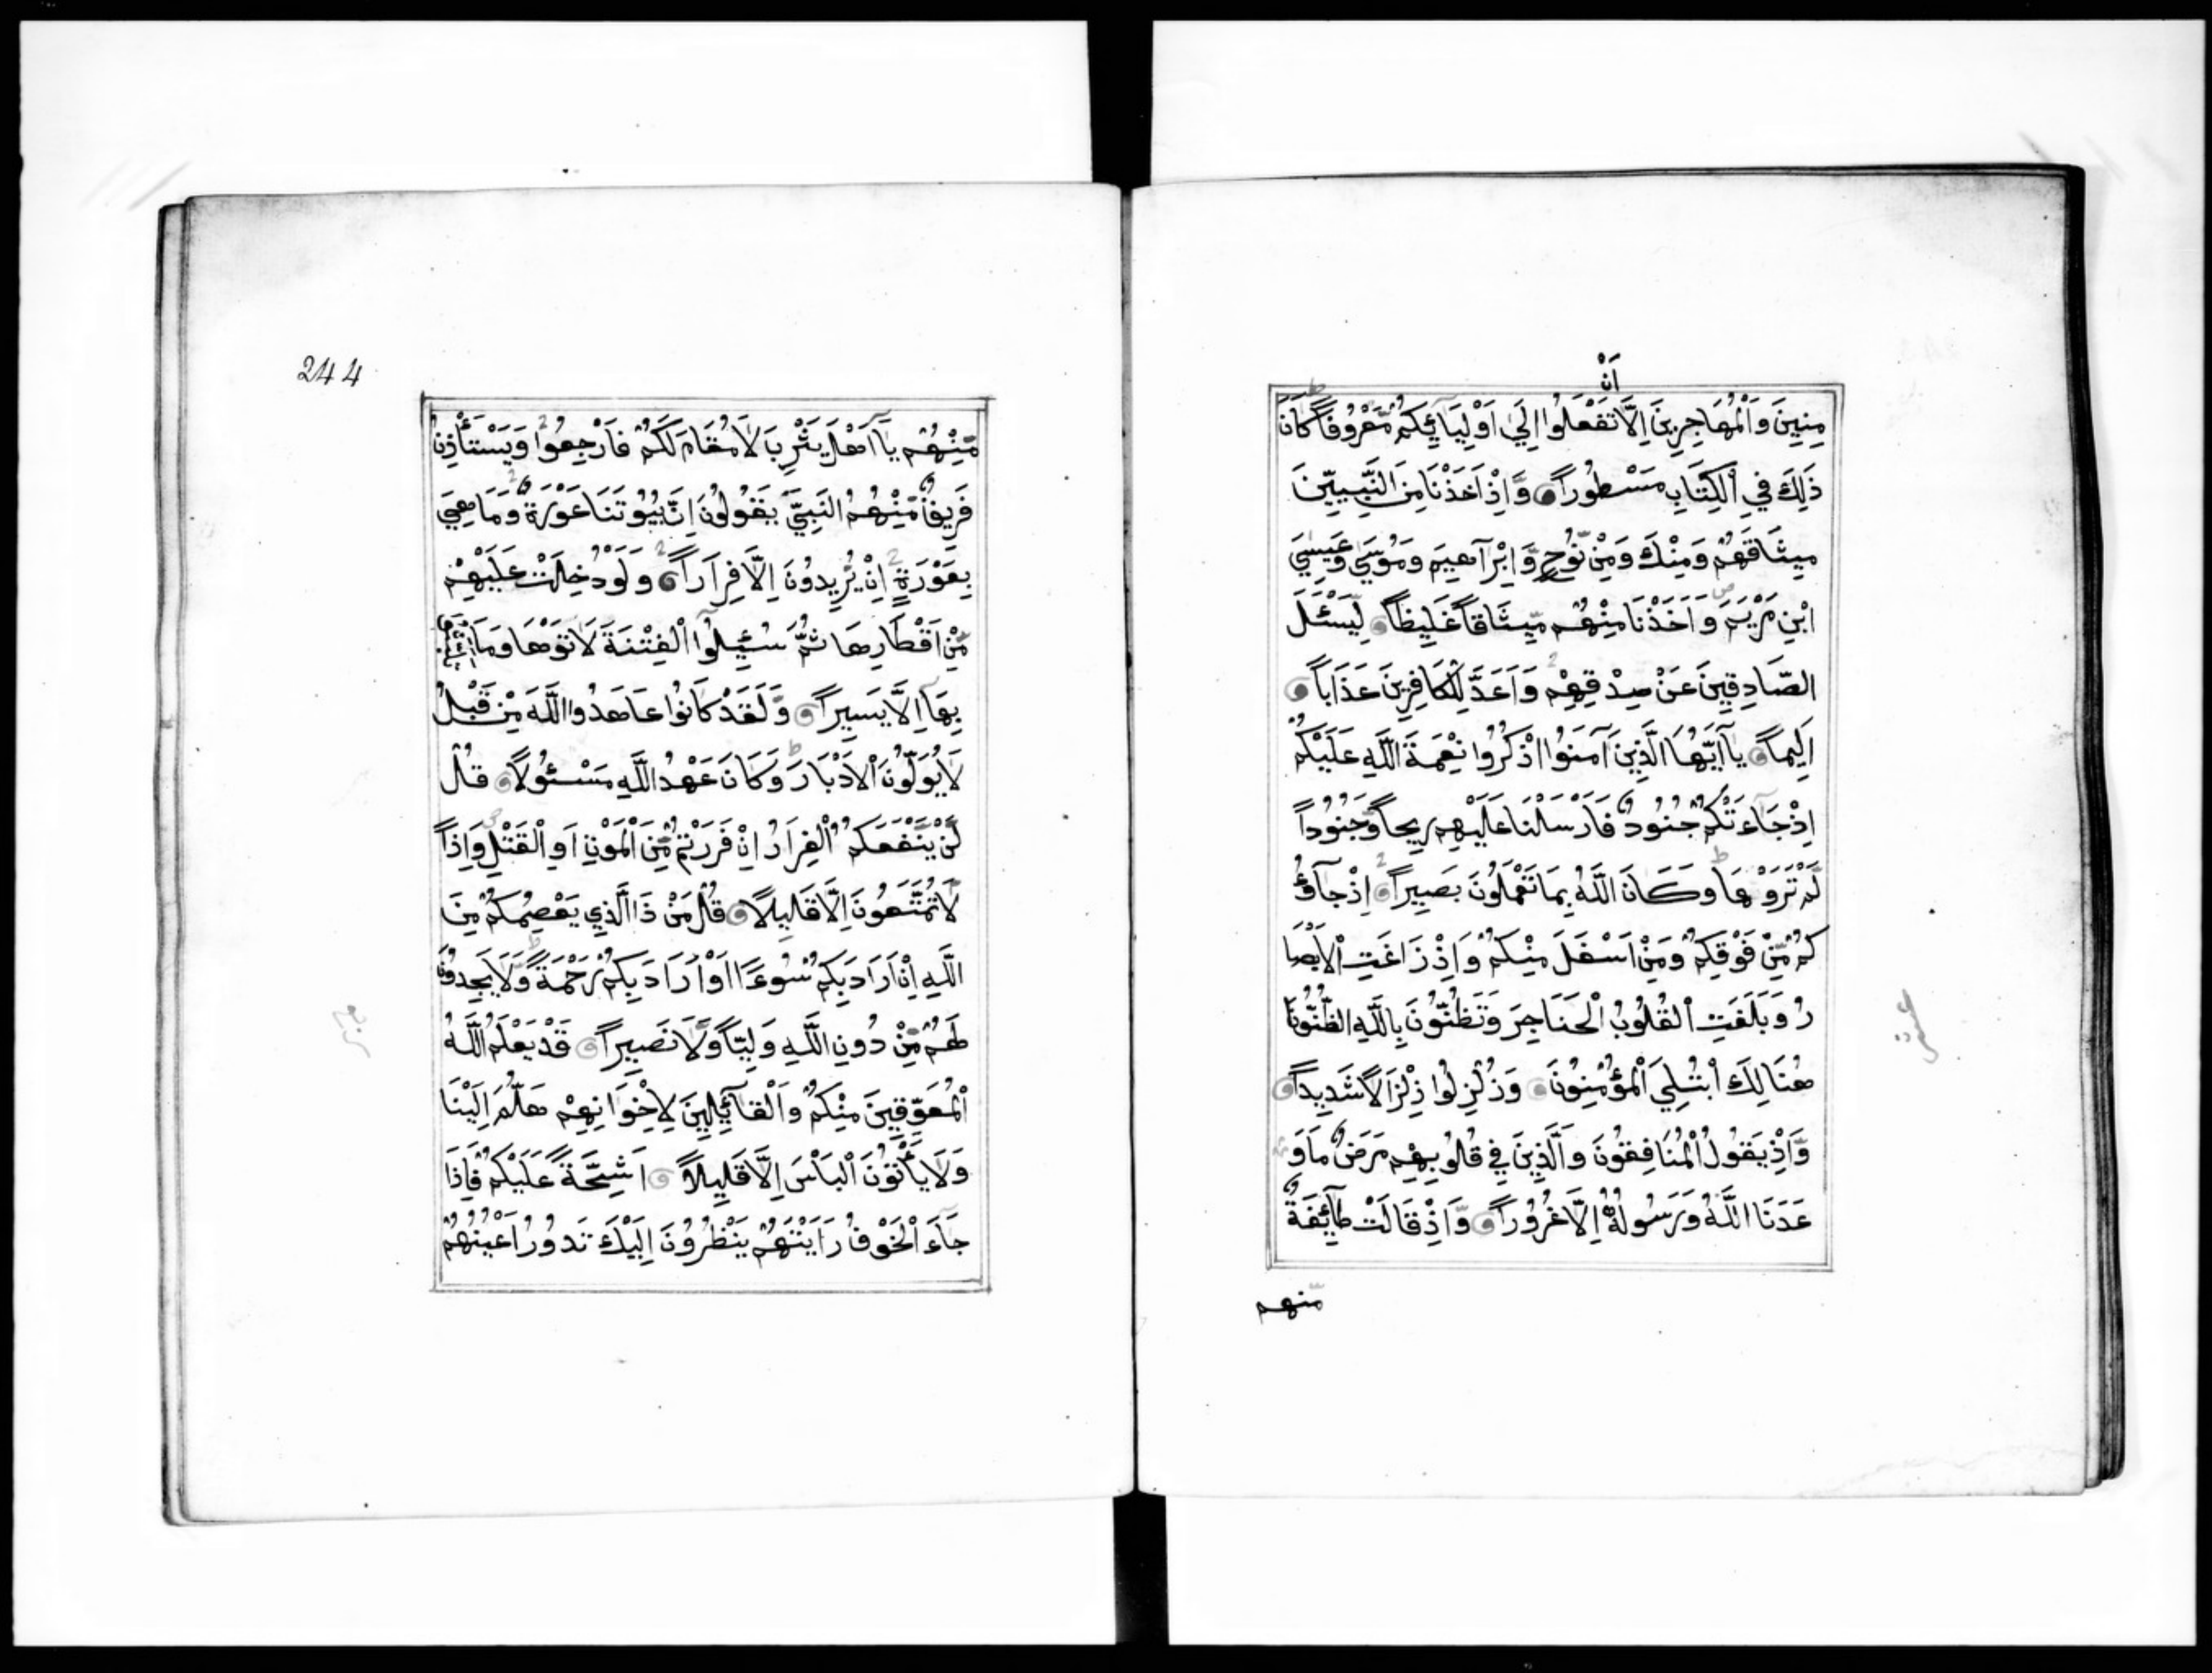 اَنْ
مِنِينَ وَالْمُهَاجِرِينَ اِلَّا تَفْعَلُوا اِلَيٰ اَوْلِيَآئِكُمْ مَّعْرُوفًا ط كَانَ
ذَلِكَ فِي الْكِتَابِ مَسْطُورًا وَّاِذْ اَخَذْنَا مِنَ النَّبِيِّينَ
مِيثَاقَهُمْ وَمِنْكَ وَمِنْ نُّوْحٍ وَّاِبْرَاهِيمَ وَمُوْسَيٰ وَعِيسَيٰ
ابْنِ مَرْيَمَ ص وَاَخَذْنَا مِنْهُمْ مِّيثَاقًا غَلِيظًا لِّيَسْئَلَ
الصَّادِقِينَ عَنْ صِدْقِهِمْ وَاَعَدَّ لِلْكَافِرِينَ عَذَابًا
اَلِيمًا يآاَيُّهَا الَّذِينَ آمَنُوْا اذْكُرُوا نِعْمَةَ اللَّهِ عَلَيْكُمْ
اِذْ جَآءَتْكُمْ جُنُودٌ فَاَرْسَلْنَا عَلَيْهِمْ رِيحًا وَّجُنُودًا
لَّمْ تَرَوْهَا ط وَكَانَ اللَّهُ بِمَا تَعْمَلُونَ بَصِيرًا اِذْ جَآؤُ
كُمْ مِّنْ فَوْقِكُمْ وَمِنْ اَسْفَلَ مِنْكُمْ وَاِذْ زَاغَتِ الْاَبْصَا
رُ وَبَلَغَتِ الْقُلُوْبُ الْحَنَاجِرَ وَتَظُنُّوْنَ بِاللَّهِ الظُّنُوْنَا
هُنَالِكَ ابْتُلِيَ الْمُؤْمِنُوْنَ وَزُلْزِلُوْا زِلْزَالًا شَدِيدًا
وَّاِذْ يَقُولُ الْمُنَافِقُونَ وَالَّذِينَ فِي قُلُوبِهِمْ مَرَضٌ مَا وَ
عَدَنَا اللَّهُ وَرَسُولُهُ اِلَّا غُرُوْرًا وَّاِذْ قَالَتْ طَآئِفَةٌ
مّنهم
عشر
244
مِّنْهُمْ يآاَهْلَ يَثْرِبَ لَا مُقَامَ لَكُمْ فَارْجِعُوْا وَيَسْتَأْذِنُ
فَرِيقٌ مِّنْهُمُ النَّبِيَّ يَقُولُوْنَ اِنَّ بُيُوْتَنَا عَوْرَةٌ وَمَا هِيَ
بِعَوْرَةٍ اِنْ يُّرِيدُونَ اِلَّا فِرَارًا وَلَوْ دُخِلَتْ عَلَيْهِمْ
مِّنْ اَقْطَارِهَا ثُمَّ سُئِلُوْا الْفِتْنَةَ لَاتَوْهَا وَمَا
بِهَا اِلَّا يَسِيرًا وَّلَقَدْ كَانُوْا عَاهَدُوا اللَّهَ مِنْ قَبْلُ
لَا يُوَلُّوْنَ الْاَدْبَارَ ط وَكَانَ عَهْدُ اللَّهِ مَسْئُوْلًا قُلْ
لَّنْ يَّنْفَعَكُمُ الْفِرَارُ اِنْ فَرَرْتُمْ مِّنَ الْمَوْتِ اَوِ الْقَتْلِ وَاِذًا
لَّا تُمَتَّعُوْنَ اِلَّا قَلِيلًا قُلْ مَنْ ذَا الَّذِي يَعْصِمُكُمْ مِّنَ
اللَّهِ اِنْ اَرَادَ بِكُمْ سُوْءًا اَوْ اَرَادَ بِكُمْ رَحْمَةً ط وَّلَا يَجِدُوْنَ
لَهُمْ مِّنْ دُونِ اللَّهِ وَلِيًّا وَّلَا نَصِيرًا قَدْ يَعْلَمُ اللَّهُ
الْمُعَوِّقِينَ مِنْكُمْ وَالْقَآئِلِينَ لِاِخْوَانِهِمْ هَلُمَّ اِلَيْنَا
وَلَا يَأْتُوْنَ الْبَأْسَ اِلَّا قَلِيلًا اَشِحَّةً عَلَيْكُمْ فَاِذَا
جَآءَ الْخَوْفُ رَاَيْتَهُمْ يَنْظُرُوْنَ اِلَيْكَ تَدُوْرُ اَعْيُنُهُمْ